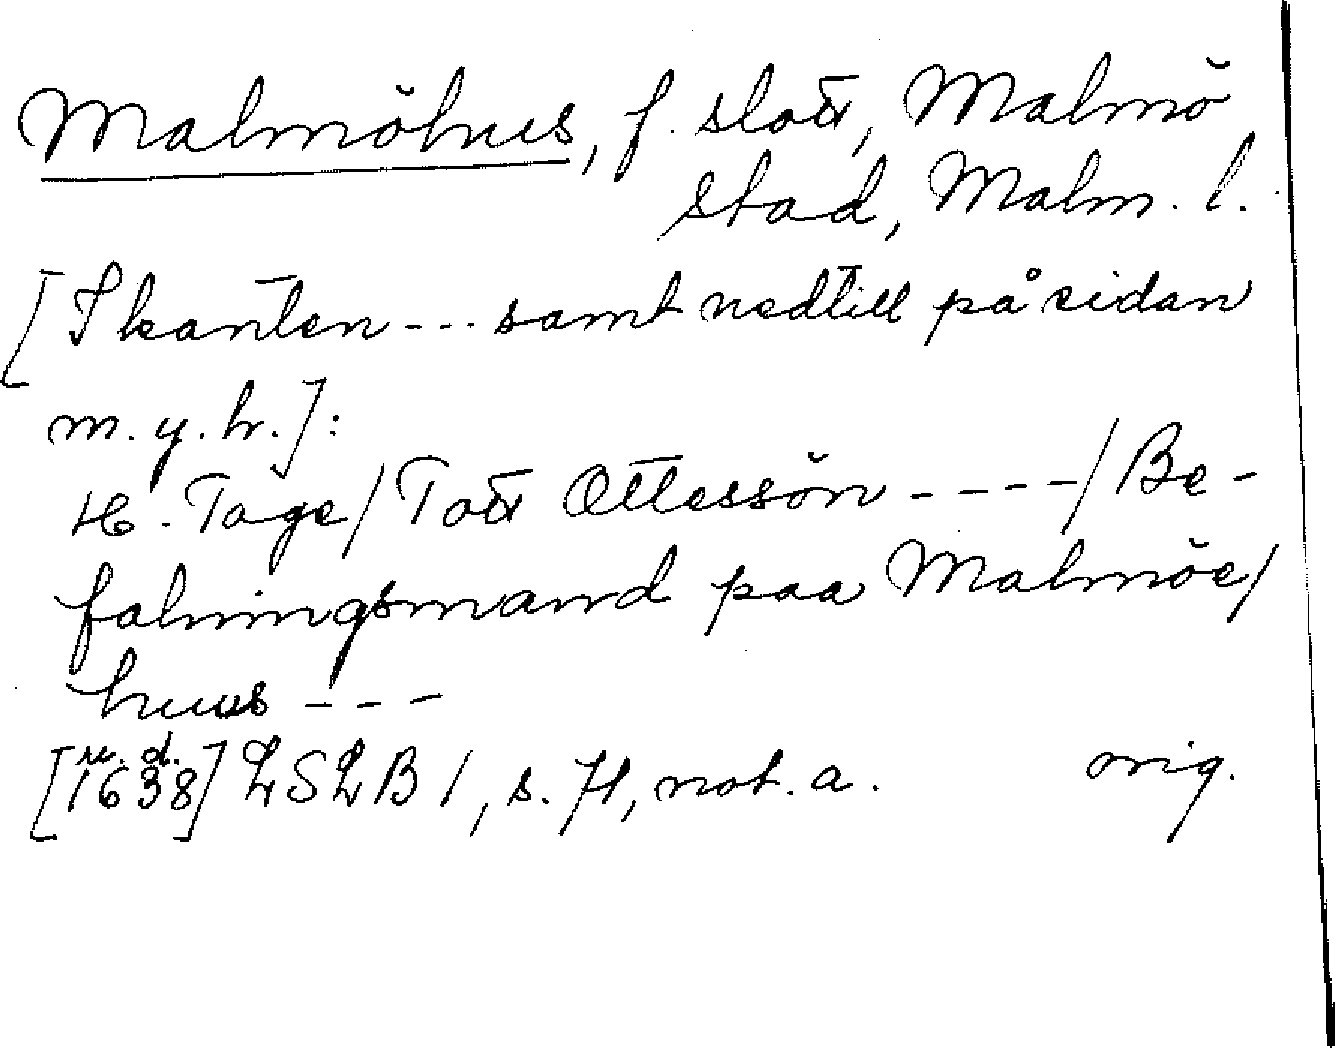 Malmöhus, f. slott, Malmö
stad, Malm. l.
[I kanten --- samt nedtill på sidan
m. y. h.]:
H. Tage/ Tott Ottessön ----/ Be-
falningsmand paa Malmöe/
huus ---
[u. d.
1638] LSLB 1, s. 71, not. a. orig.